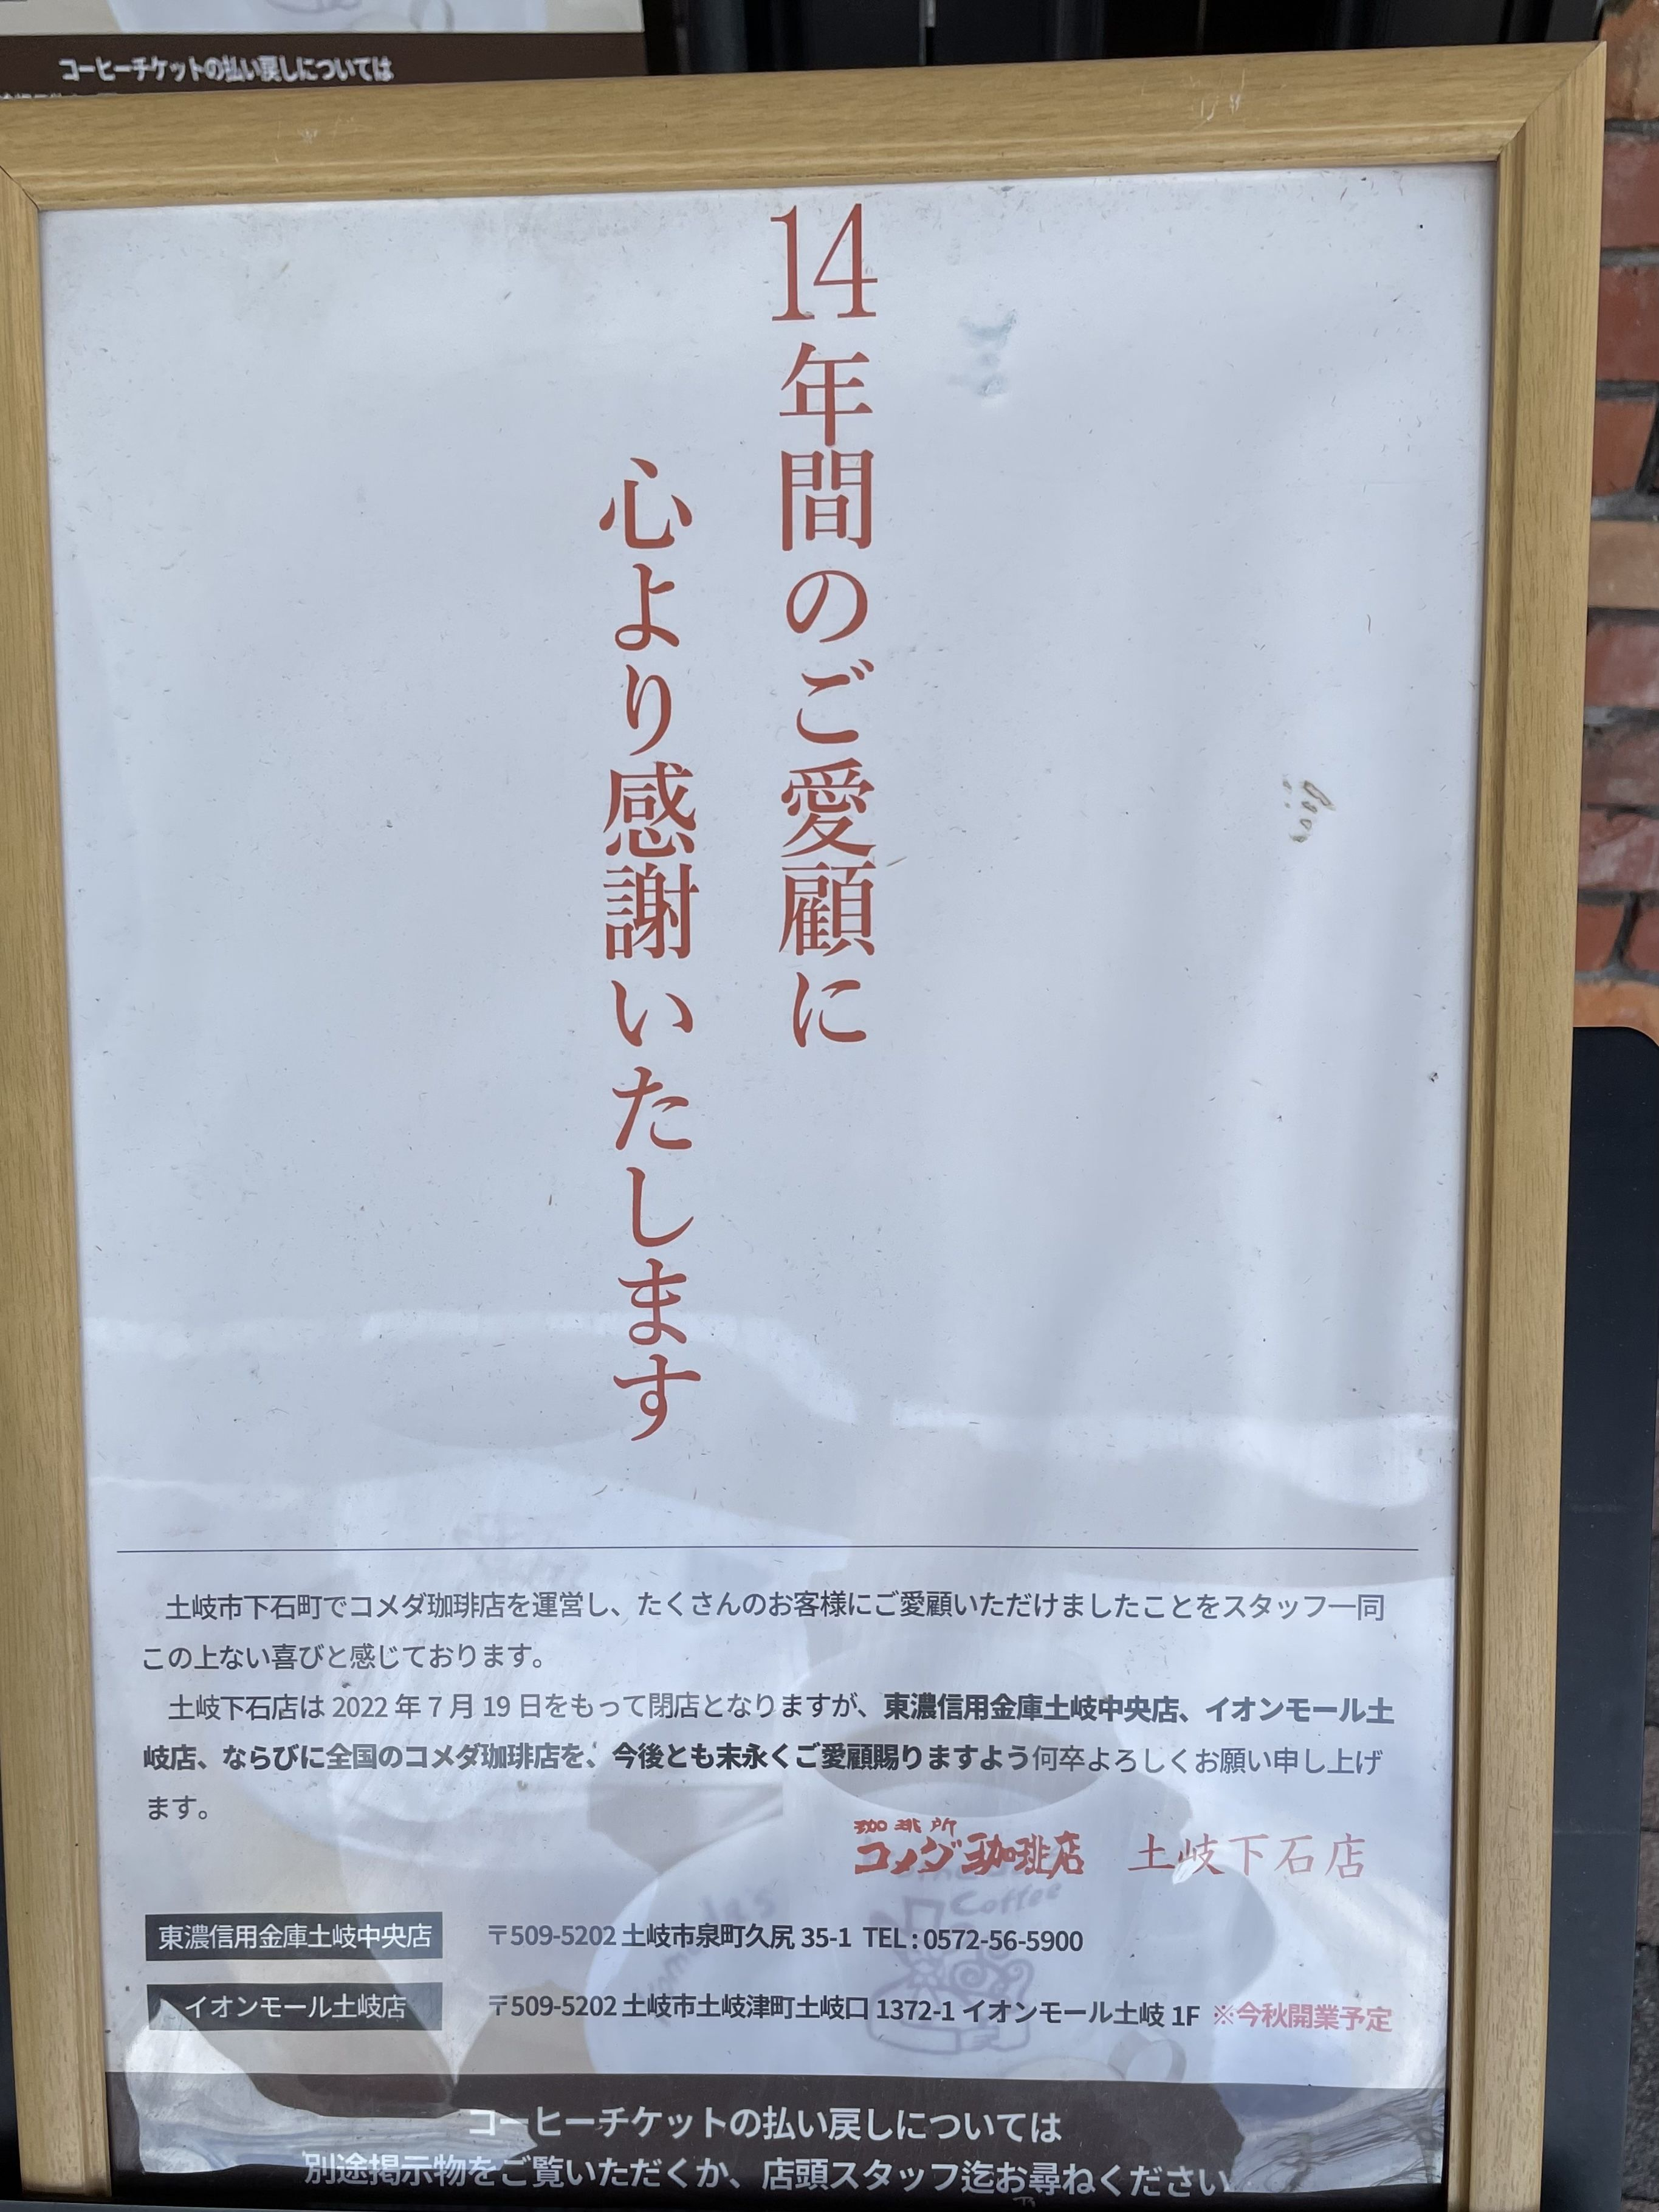 コーヒーチケットの払い戻しについては
14年間のご愛顧に
心より感謝いたします
土岐市下石町でコメダ珈琲店を運営し、たくさんのお客様にご愛顧いただけましたことをスタッフ一同
この上ない喜びと感じております。
土岐下石店は 2022 年 7 月 19 日をもって閉店となりますが、東濃信用金庫土岐中央店、イオンモール土
岐店、ならびに全国のコメダ珈琲店を、今後とも末永くご愛顧賜りますよう何卒よろしくお願い申し上げ
ます。
珈琲所
コメダ珈琲店 土岐下石店
東濃信用金庫土岐中央店 〒509-5202 土岐市泉町久尻 35-1 TEL : 0572-56-5900
イオンモール土岐店 〒509-5202 土岐市土岐津町土岐口 1372-1 イオンモール土岐 1F ※今秋開業予定
コーヒーチケットの払い戻しについては
別途掲示物をご覧いただくか、店頭スタッフ迄お尋ねください